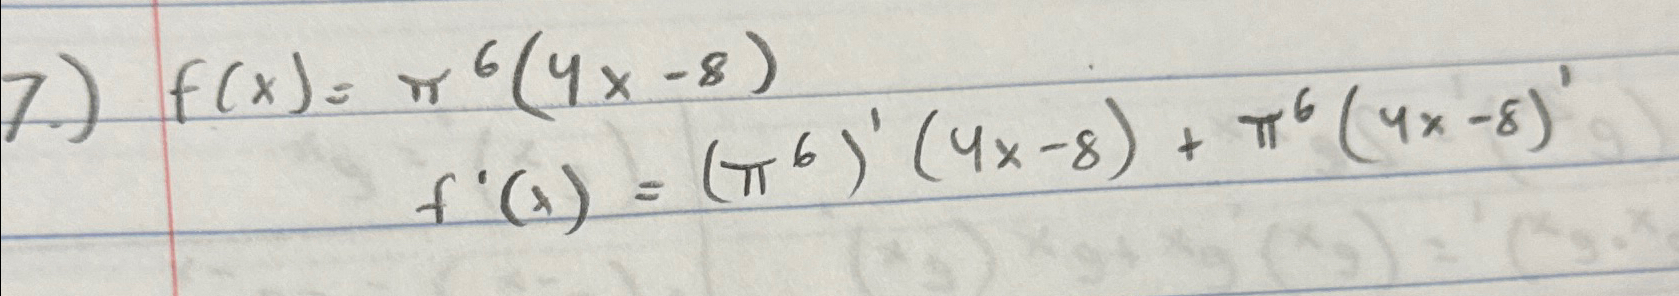 7.) f(x) = π⁶(4x - 8)
f'(x) = (π⁶)' (4x - 8) + π⁶ (4x - 8)'